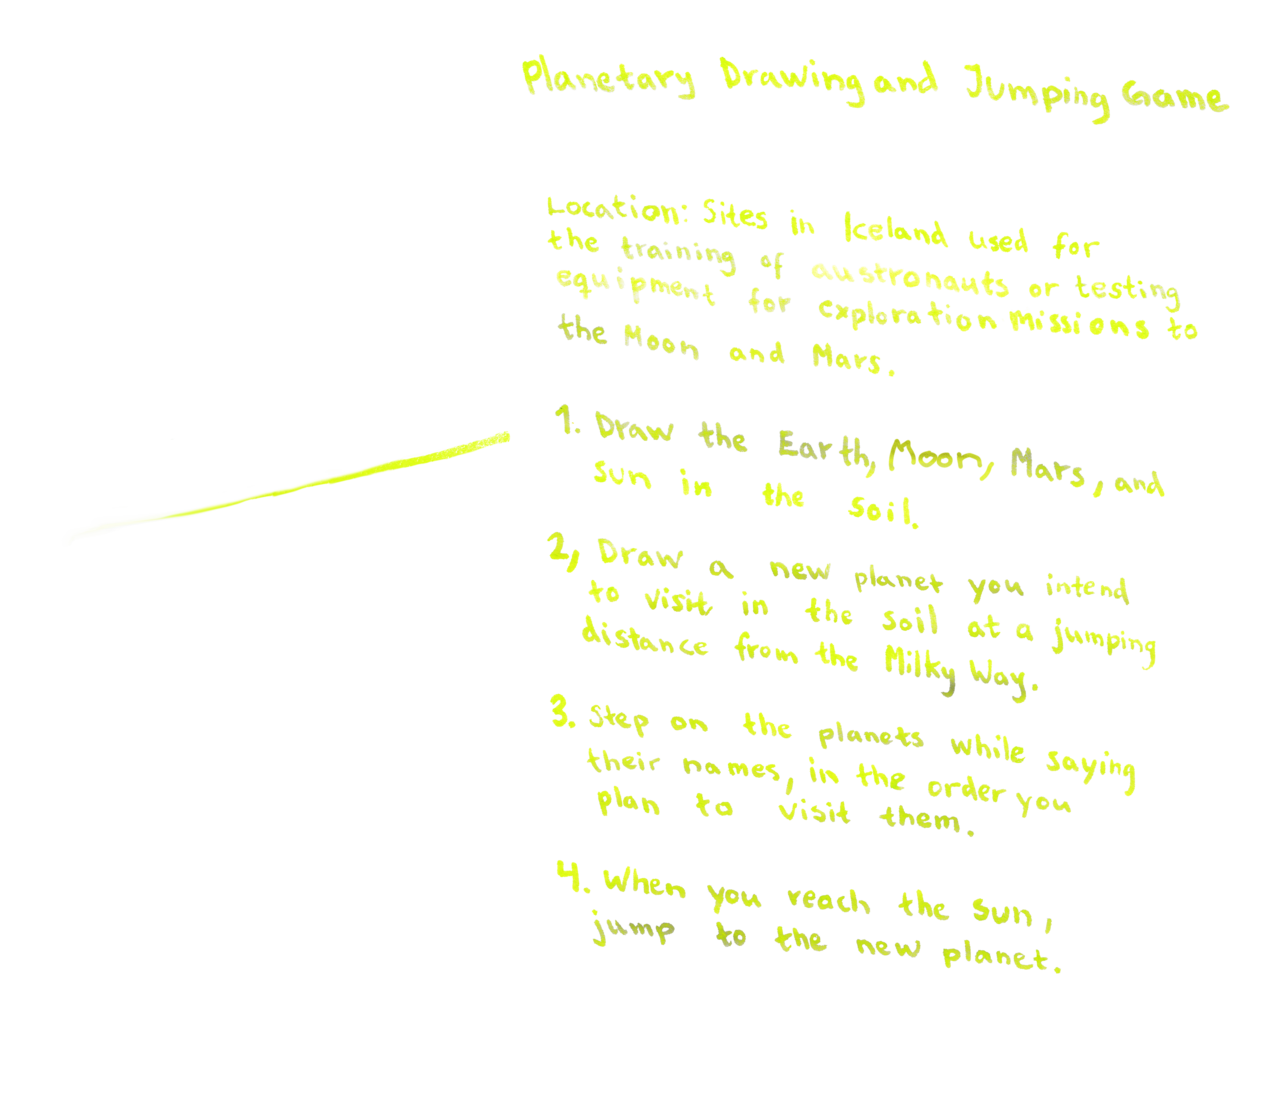 Planetary Drawing and Jumping Game
Location: Sites in Iceland used for
the training of austronauts or testing
equipment for exploration missions to
the Moon and Mars.
1. Draw the Earth, Moon, Mars, and
sun in the soil.
2, Draw a new planet you intend
to visit in the soil at a jumping
distance from the Milky Way.
3. Step on the planets while saying
their names, in the order you
plan to visit them.
4. When you reach the sun,
jump to the new planet.